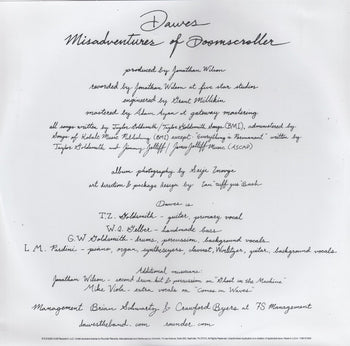 Dawes
Misadventures of Doomscroller
produced by Jonathan Wilson
recorded by Jonathan Wilson at five star studios
engineered by Grant Millikin
mastered by Adam Ayan at gateway mastering
all songs written by Taylor Goldsmith/Taylor Goldsmith Songs (BMI), administered by
Songs of Kobalt Music Publishing (BMI) except "Everything is Permanent" written by
Taylor Goldsmith and Jimmy Jolliff/James Jolliff Music (ASCAP)
album photography by
art direction & package design by
Dawes is
T.Z. Goldsmith - guitar, primary vocal
W.Q. Gelber - handmade bass
G.W. Goldsmith - drums, percussion, background vocals
L.M. Pardini - piano, organ, synthesizers, clavinet, Wurlitzer, guitar, background vocals.
Additional musicians:
Jonathan Wilson - second drum kit & percussion on "Ghost in the Machine"
Mike Viola - extra vocals on "Comes in Waves"
Management: Brian Schwartz & Crawford Byers at 7S Management
dawestheband.com rounder.com